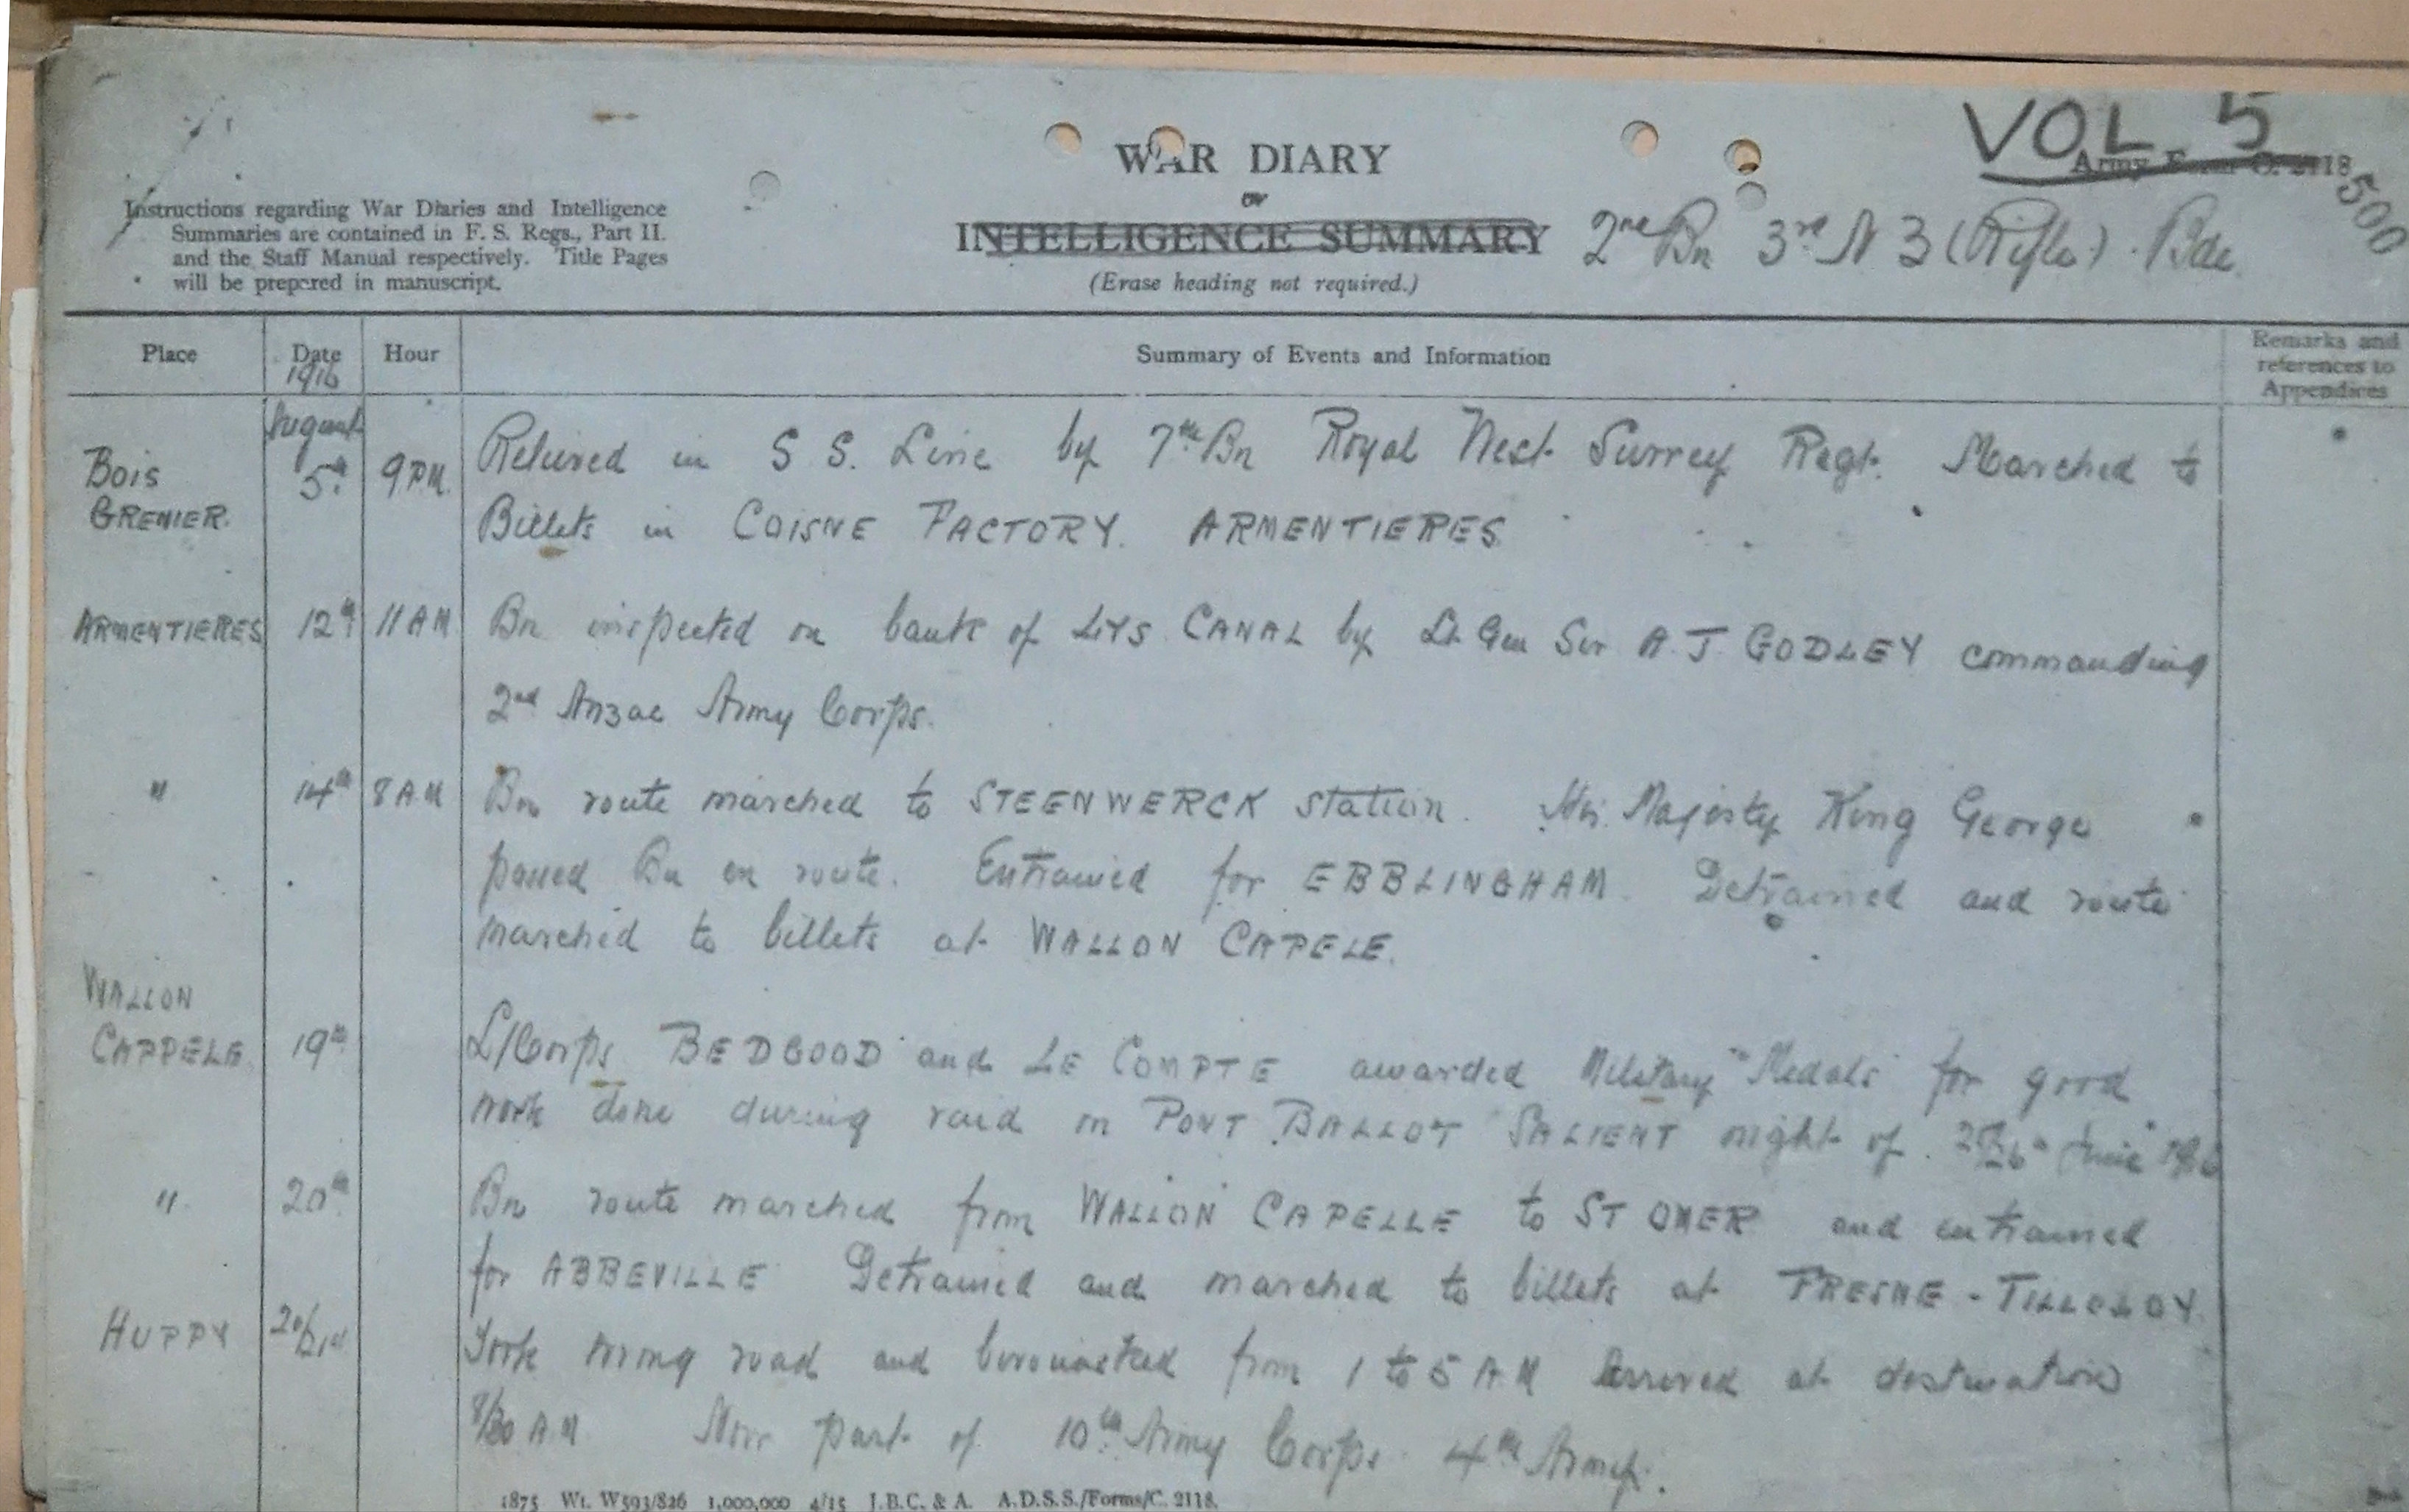 VOL 5
Army Form C. 2118
500
WAR DIARY
or
INTELLIGENCE SUMMARY
(Erase heading not required.)
2nd Bn 3rd N Z (Rifle) Bde
Instructions regarding War Diaries and Intelligence
Summaries are contained in F. S. Regs., Part II.
and the Staff Manual respectively. Title Pages
will be prepared in manuscript.
Place Date Hour Summary of Events and Information Remarks and references to Appendices
1916
August
BOIS GRENIER. 5th 9 P.M. Relieved in S S. Line by 7th Bn Royal West Surrey Regt. Marched to
Billets in COISNE FACTORY. ARMENTIERES
ARMENTIERES 12th 11 AM Bn inspected on bank of LYS CANAL by Lt Gen Sir A. J. GODLEY commanding
2nd Anzac Army Corps.
" 14th 8 AM Bn route marched to STEENWERCK station. His Majesty King George
passed Bn en route. Entrained for EBBLINGHAM. Detrained and route
marched to billets at WALLON CAPELE.
WALLON
CAPPELE 19th L/Corps BEDGOOD and LE COMPTE awarded Military Medals for good
work done during raid on PONT BALLOT SALIENT night of 25th/26th June 1916
" 20th Bn route marched from WALLON CAPELLE to ST OMER and entrained
for ABBEVILLE Detrained and marched to billets at FRESNE - TILLOLOY
HUPPY 20/21st Took wrong road and bivouacked from 1 to 5 AM Arrived at destination
8/30 A.M. Now part of 10th Army Corps 4th Army.
1875 Wt. W593/826 1,000,000 4/15 J.B.C. & A. A.D.S.S./Forms/C. 2118.